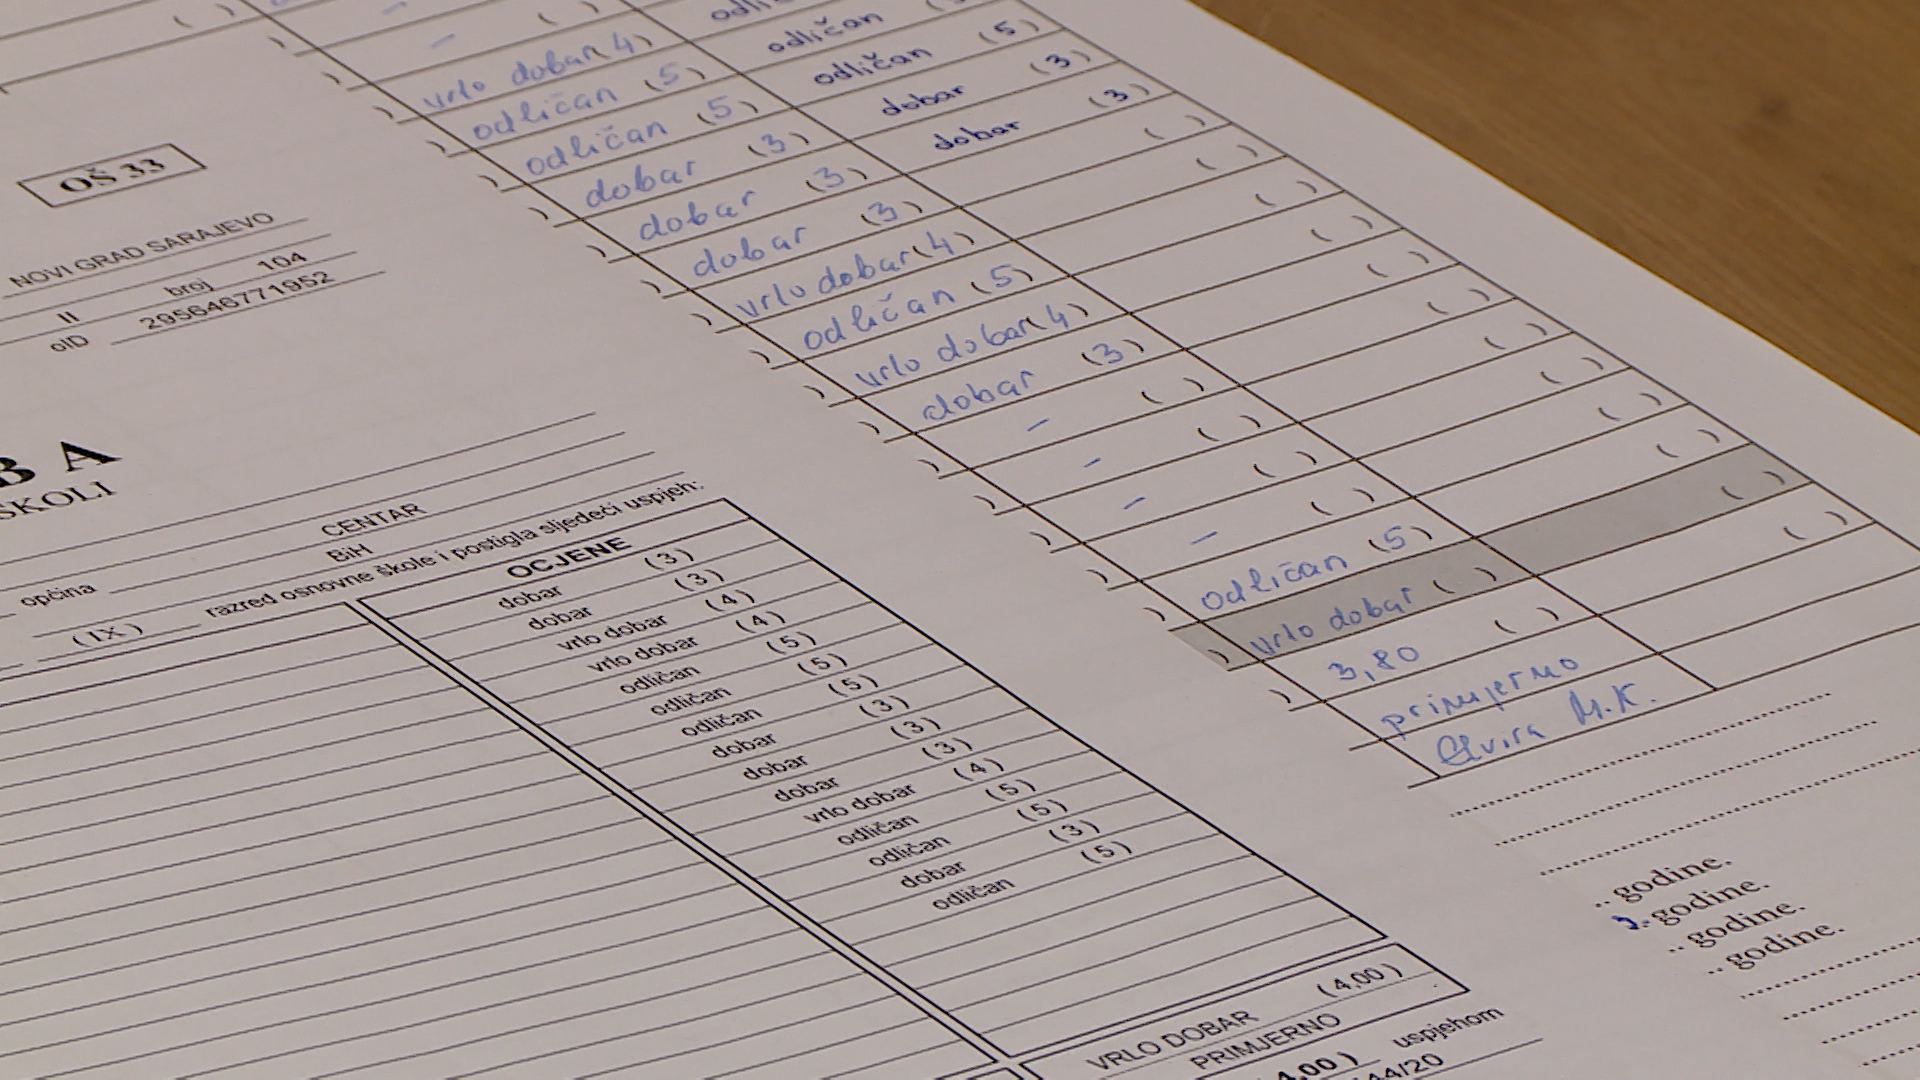 OŠ 33
NOVI GRAD SARAJEVO
II broj 104
oID 295646771952
B A
ŠKOLI
općina CENTAR
BiH
(IX) razred osnovne škole i postigla sljedeći uspjeh:
OCJENE
dobar (3)
dobar (3)
vrlo dobar (4)
vrlo dobar (4)
odličan (5)
odličan (5)
odličan (5)
dobar (3)
dobar (3)
dobar (3)
vrlo dobar (4)
odličan (5)
odličan (5)
dobar (3)
odličan (5)
VRLO DOBAR (4,00)
PRIMJERNO
uspjehom
44/20
- ( )
vrlo dobar (4)
odličan (5)
odličan (5)
dobar (3)
dobar (3)
dobar (3)
vrlo dobar (4)
odličan (5)
vrlo dobar (4)
dobar (3)
- ( )
- ( )
- ( )
- ( )
odličan (5)
vrlo dobar ( )
3,80 ( )
primjerno
Elvira M.K.
odličan
odličan (5)
dobar (3)
dobar (3)
.. godine.
godine.
.. godine.
.. godine.